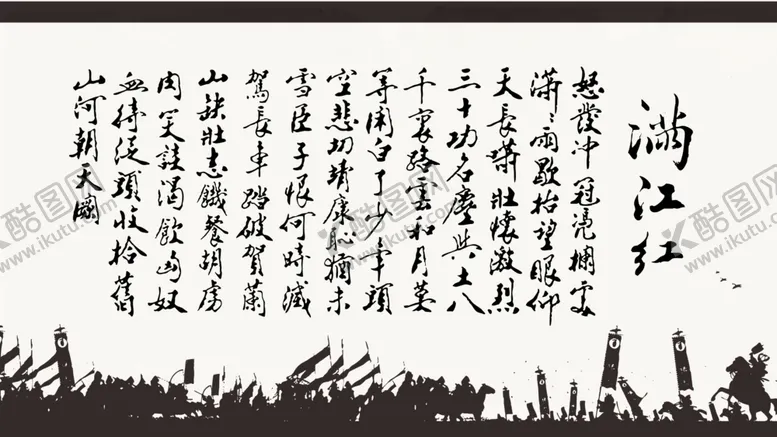 滿江红
怒發冲冠凭欄處
瀟瀟雨歇抬望眼仰
天長嘯壯懷激烈
三十功名塵與土八
千裏路雲和月莫
等閑白了少年頭
空悲切靖康恥猶未
雪臣子恨何時滅
駕長車踏破賀蘭
山缺壯志饑餐胡虜
肉笑談渴飲匈奴
血待從頭收拾舊
山河朝天闕
酷图网
www.ikutu.com
酷图网
www.ikutu.com
酷图网
www.ikutu.com